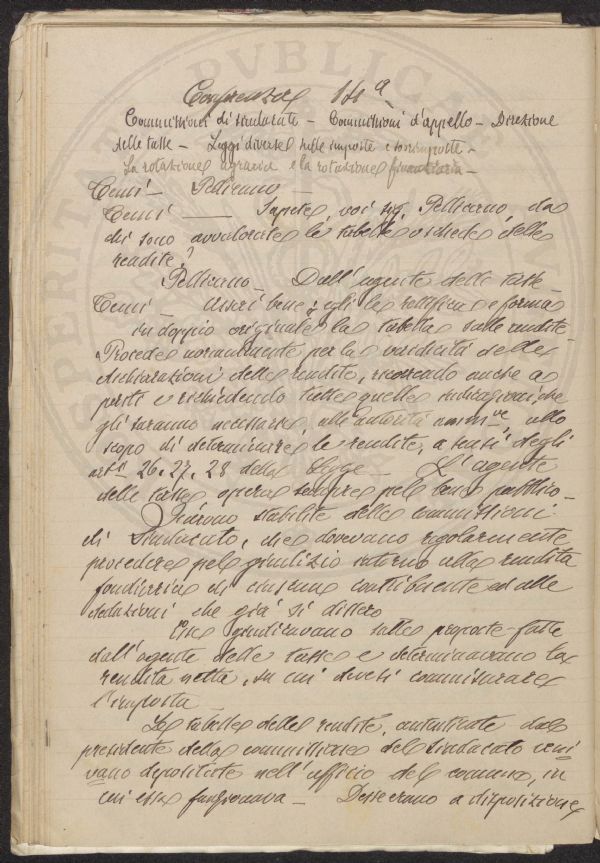 Conferenza 14ª
Commissioni di sindacato – Commissioni d'appello – Direzione
delle tasse – Leggi diverse sulle imposte e sovrimposte –
La rotazione agraria e la rotazione finanziaria –
Cenci – Pellicano –
Cenci – Sapete, voi sig. Pellicano, da
chi sono avvalorate le tabelle o schede delle
rendite?
Pellicano – Dall'agente delle tasse
Cenci – Assai bene; egli le rettifica e forma
in doppio originale la tabella sulle rendite –
Procede normalmente per la veridicità delle
dichiarazioni delle rendite, ricorrendo anche a
periti e richiedendo tutte quelle indicazioni che
gli saranno necessarie, alle autorità amm.ve, allo
scopo di determinare le rendite, a sensi degli
art.i 26, 27, 28 della legge – L'agente
delle tasse opera sempre pel bene pubblico –
Furono stabilite delle commissioni
di Sindacato, che dovevano regolarmente
procedere pel giudizio intorno alla rendita
fondiaria di ciascun contribuente ed alle
deduzioni che già si dissero
Esse giudicavano sulle proposte fatte
dall'agente delle tasse e determinavano la
rendita netta, su cui devesi commisurare
l'imposta –
Le tabelle delle rendite, autenticate dal
presidente della commissione del Sindacato veni
vano depositate nell'ufficio del comune, in
cui essa funzionava – Desse erano a disposizione
PVBLICAE